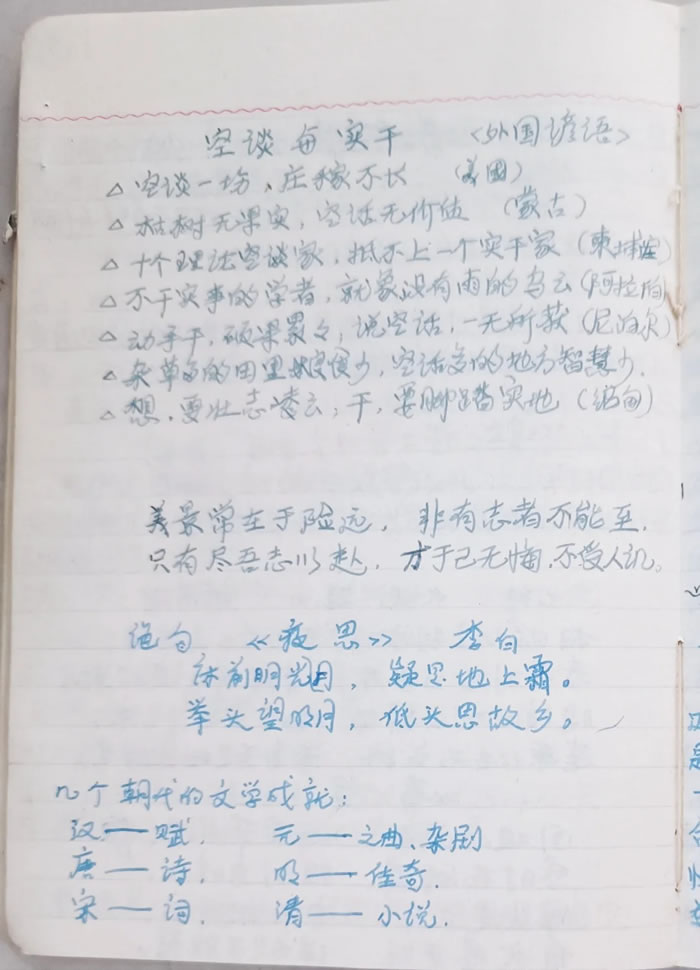 空谈与实干 <外国谚语>
△空谈一场、庄稼不长 (美国)
△枯树无果实，空话无价值 (蒙古)
△十个理论空谈家，抵不上一个实干家 (柬埔寨)
△不干实事的学者，就象没有雨的乌云 (阿拉伯)
△动手干，硕果累々，说空话，一无所获 (尼泊尔)
△杂草多的田里粮食少，空话多的地方智慧少．
△想，要壮志凌云，干，要脚踏实地 (缅甸)
美景常在于险远，非有志者不能至．
只有尽吾志以赴，才于己无悔，不受人讥。
绝句 《夜思》 李白
床前明光月，疑是地上霜。
举头望明月，低头思故乡。
几个朝代的文学成就：
汉——赋． 元——文曲、杂剧
唐——诗． 明——传奇．
宋——词． 清——小说．